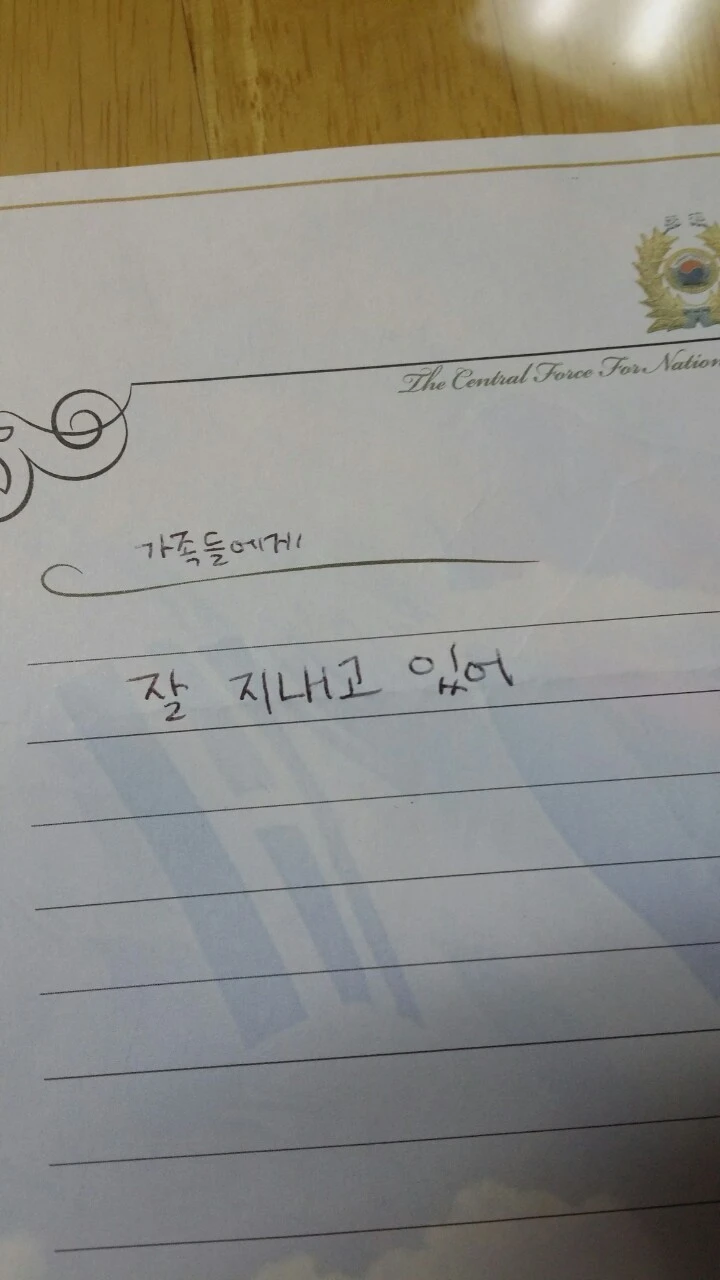 The Central Force For Nation
가족들에게
잘 지내고 있어